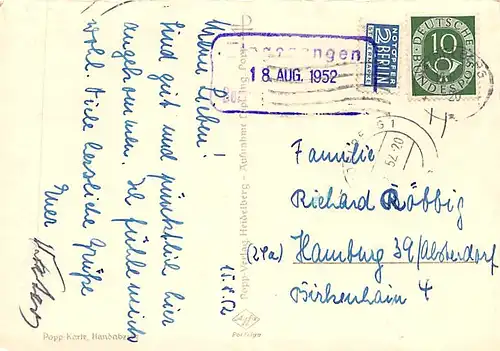 Meine Lieben!
Sind gut und pünktlich hier
angekommen. Ich fühle mich
wohl. Viele herzliche Grüße
Euer
15.8.52
Popp-Verlag Heidelberg - Aufnahme Dipl. Ing. Popp
Popp-Karte, Handabzug
Agfa
18. AUG. 1952
NOTOPFER
2 BERLIN
STEUERMARKE
DEUTSCHE
10
BUNDESPOST
Familie
Richard Röbbig
(24a) Hamburg 39/Alsterdorf
Birkenhain 4